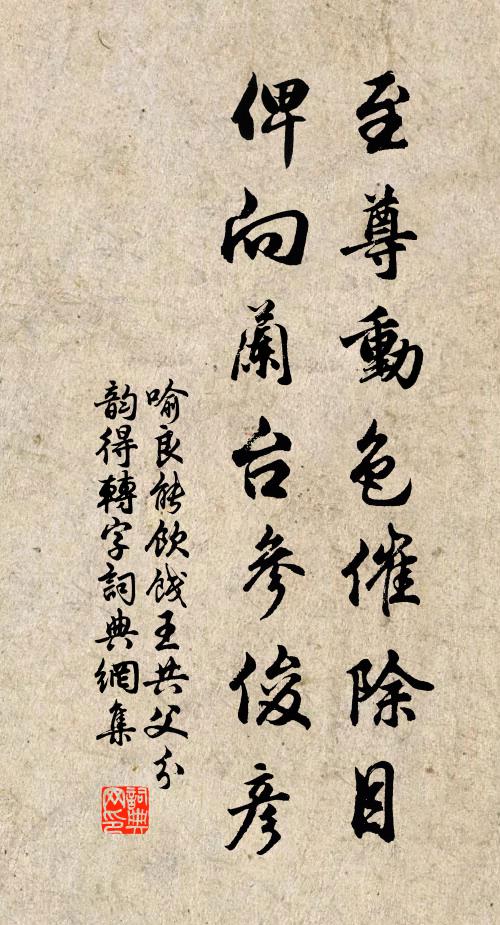 至尊動色催除目
俾向蘭台參俊彥
喻良能飲餞王共父分
韵得轉字詞典網集
詞典
网印